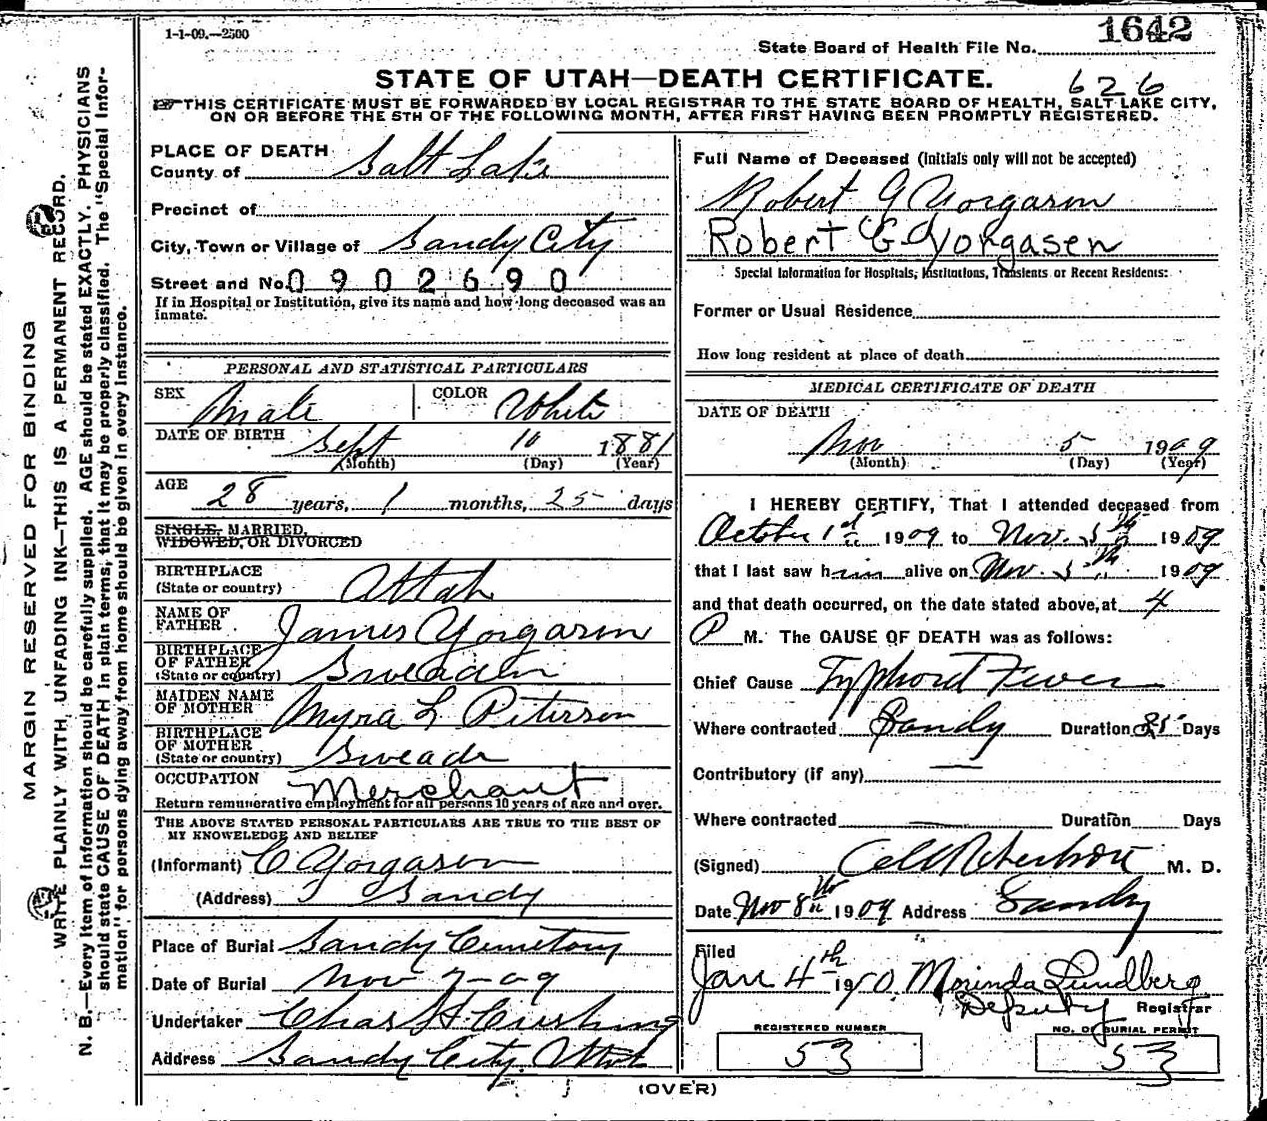 1-1-09.—2500
1642
State Board of Health File No.
STATE OF UTAH—DEATH CERTIFICATE.
626
THIS CERTIFICATE MUST BE FORWARDED BY LOCAL REGISTRAR TO THE STATE BOARD OF HEALTH, SALT LAKE CITY,
ON OR BEFORE THE 5TH OF THE FOLLOWING MONTH, AFTER FIRST HAVING BEEN PROMPTLY REGISTERED.
MARGIN RESERVED FOR BINDING
WRITE PLAINLY WITH UNFADING INK—THIS IS A PERMANENT RECORD.
N. B.—Every item of information should be carefully supplied. AGE should be stated EXACTLY. PHYSICIANS
should state CAUSE OF DEATH in plain terms, that it may be properly classified. The "Special Infor-
mation" for persons dying away from home should be given in every instance.
PLACE OF DEATH
County of Salt Lake
Precinct of
City, Town or Village of Sandy City
Street and No. 0902690
If in Hospital or Institution, give its name and how long deceased was an
inmate.
PERSONAL AND STATISTICAL PARTICULARS
SEX Male COLOR White
DATE OF BIRTH Sept 10 1881
(Month) (Day) (Year)
AGE 28 years, 1 months, 25 days
SINGLE, MARRIED,
WIDOWED, OR DIVORCED
BIRTHPLACE
(State or country) Uttah
NAME OF
FATHER James Yorgason
BIRTHPLACE
OF FATHER
(State or country) Sweaden
MAIDEN NAME
OF MOTHER Myra L Peterson
BIRTHPLACE
OF MOTHER
(State or country) Sweade
OCCUPATION Merchant
Return remunerative employment for all persons 10 years of age and over.
THE ABOVE STATED PERSONAL PARTICULARS ARE TRUE TO THE BEST OF
MY KNOWLEDGE AND BELIEF
(Informant) C Yorgason
(Address) Sandy
Place of Burial Sandy Cemetory
Date of Burial Nov 7-09
Undertaker Chas H Cushing
Address Sandy City. Utah
Full Name of Deceased (Initials only will not be accepted)
Robert G Yorgason
Robert G. Yorgasen
Special Information for Hospitals, Institutions, Transients or Recent Residents:
Former or Usual Residence
How long resident at place of death
MEDICAL CERTIFICATE OF DEATH
DATE OF DEATH
Nov 5 1909
(Month) (Day) (Year)
I HEREBY CERTIFY, That I attended deceased from
October 1st 1909 to Nov. 5th 1909
that I last saw him alive on Nov. 5th 1909
and that death occurred, on the date stated above, at 4
P M. The CAUSE OF DEATH was as follows:
Chief Cause Typhoid Fever
Where contracted Sandy Duration 35 Days
Contributory (if any) —
Where contracted — Duration — Days
(Signed) Robertson M. D.
Date Nov 8th 1909 Address Sandy
Filed
Jan 4th 1910. Morinda Lundberg
Deputy Registrar
REGISTERED NUMBER
53
NO. OF BURIAL PERMIT
53
(OVER)